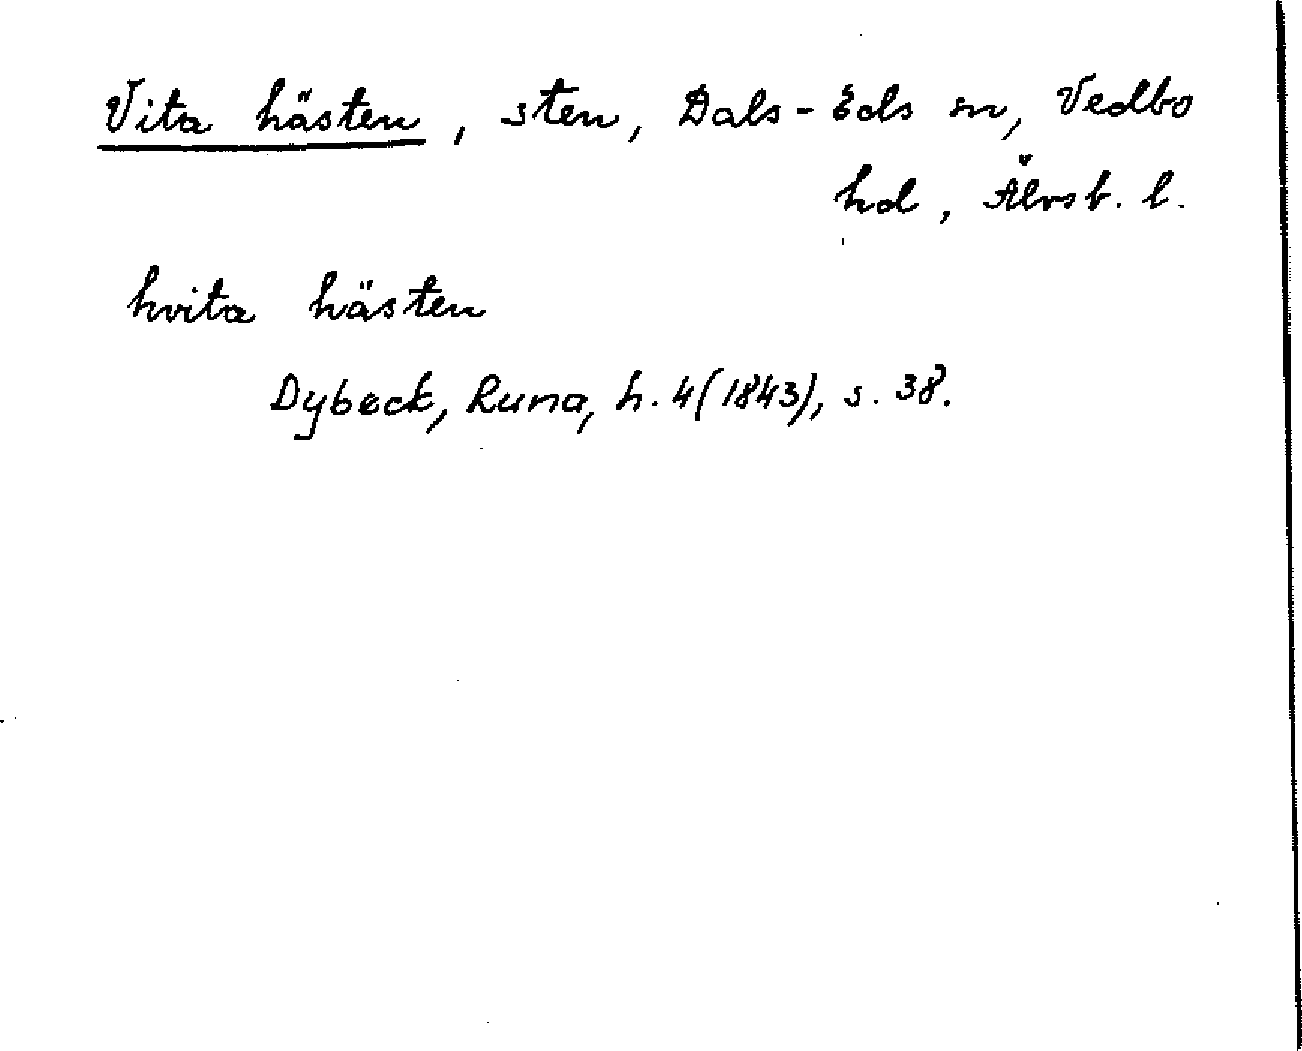 Vita hästen, sten, Dals-Eds sn, Vedbo
hd, Älvsb. l.
hvita hästen
Dybeck, Runa, h. 4 (1843), s. 38.